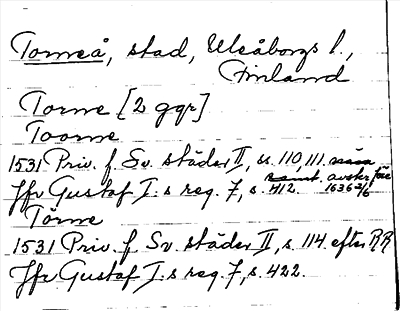 Torneå, stad, Uleåborgs l.,
Finland
Torne [2 ggr]
Toorne
1531 Priv. f. Sv. städer II, s. 110, 111.
Jfr Gustaf I:s reg. 7, s. 412. avskr från 1636 2/6
Törne
1531 Priv. f. Sv. städer II, s. 114 efter RR
Jfr Gustaf I:s reg. 7, s. 422.